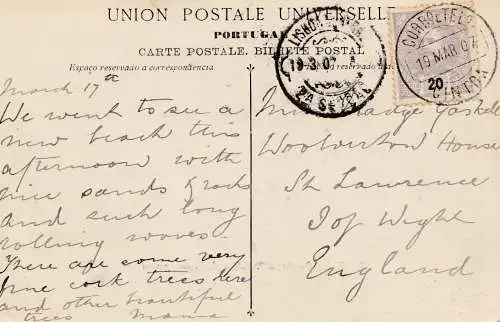 UNION POSTALE UNIVERSELLE
PORTUGAL
CARTE POSTALE. BILHETE POSTAL
Espaço reservado a correspondencia
reservado
LISBOA
19-3-07
2A SECÇÃO
CORREIO E TEL
19 MAR 07
CINTRA
20
March 17th
We went to see a
new beach this
afternoon with
nice sands & rocks
and such long
rolling waves.
There are some very
fine cork trees here
and other beautiful
trees Mama
Madge Gaskell
Woolverton House
St Lawrence
I of Wight
England